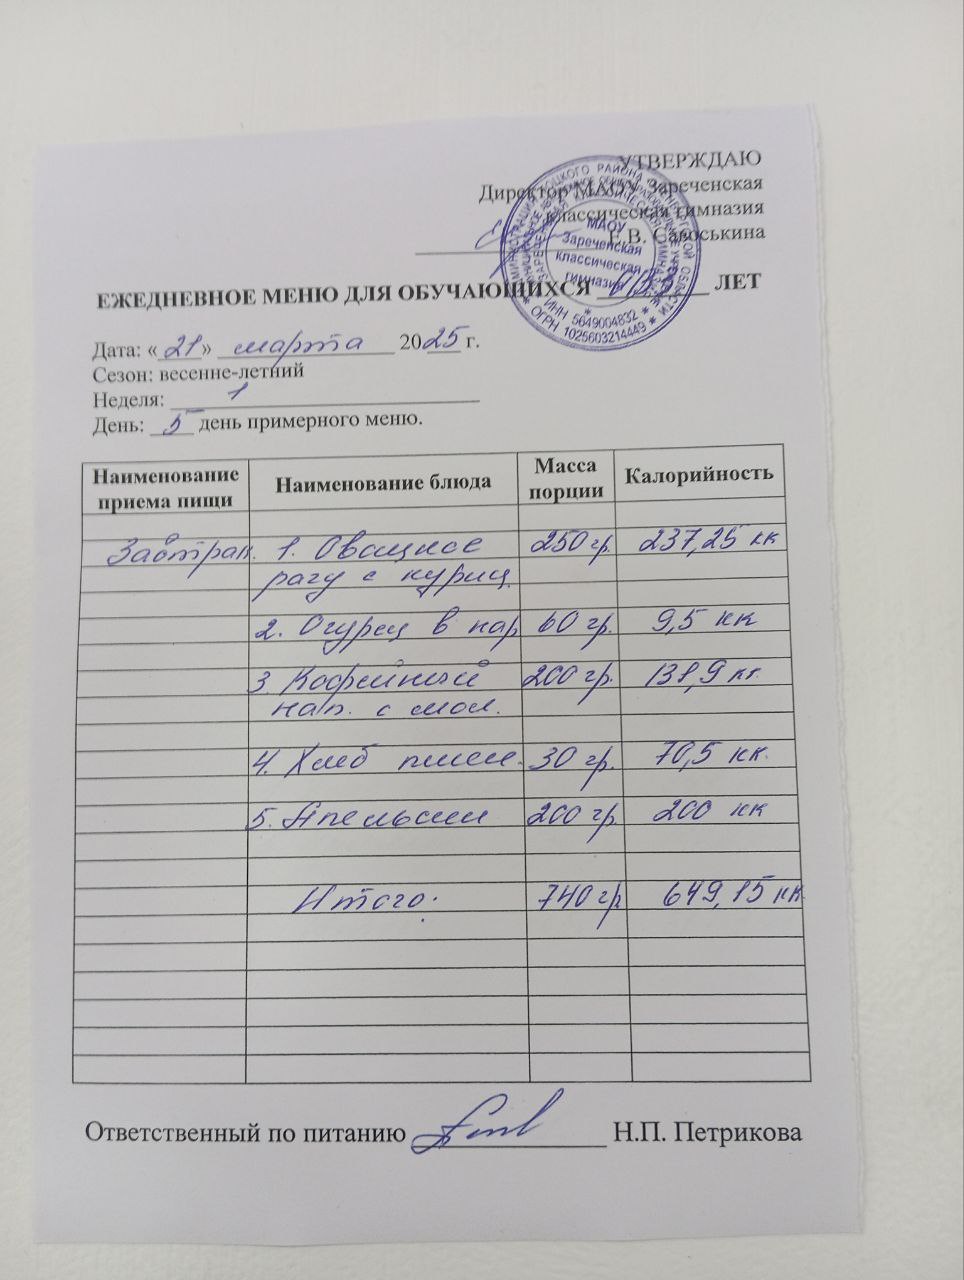 УТВЕРЖДАЮ
Директор МАОУ Зареченская
классическая гимназия
Е.В. Савоськина
МАОУ
Зареченская
классическая
гимназия
ИНН 5649004832
ОГРН 1025603214449
ЕЖЕДНЕВНОЕ МЕНЮ ДЛЯ ОБУЧАЮЩИХСЯ ЛЕТ
Дата: «21» марта 2025 г.
Сезон: весенне-летний
Неделя: 1
День: 5 день примерного меню.
Наименование приема пищи Наименование блюда Масса порции Калорийность
Завтрак. 1. Овощное 250 гр. 237,25 кк
рагу с куриц.
2. Огурец в нар 60 гр. 9,5 кк
3. Кофейный 200 гр. 131,9 кк.
нап. с мол.
4. Хлеб пшен. 30 гр. 70,5 кк.
5. Апельсин 200 гр 200 кк
Итого: 740 гр 649,15 кк
Ответственный по питанию Н.П. Петрикова